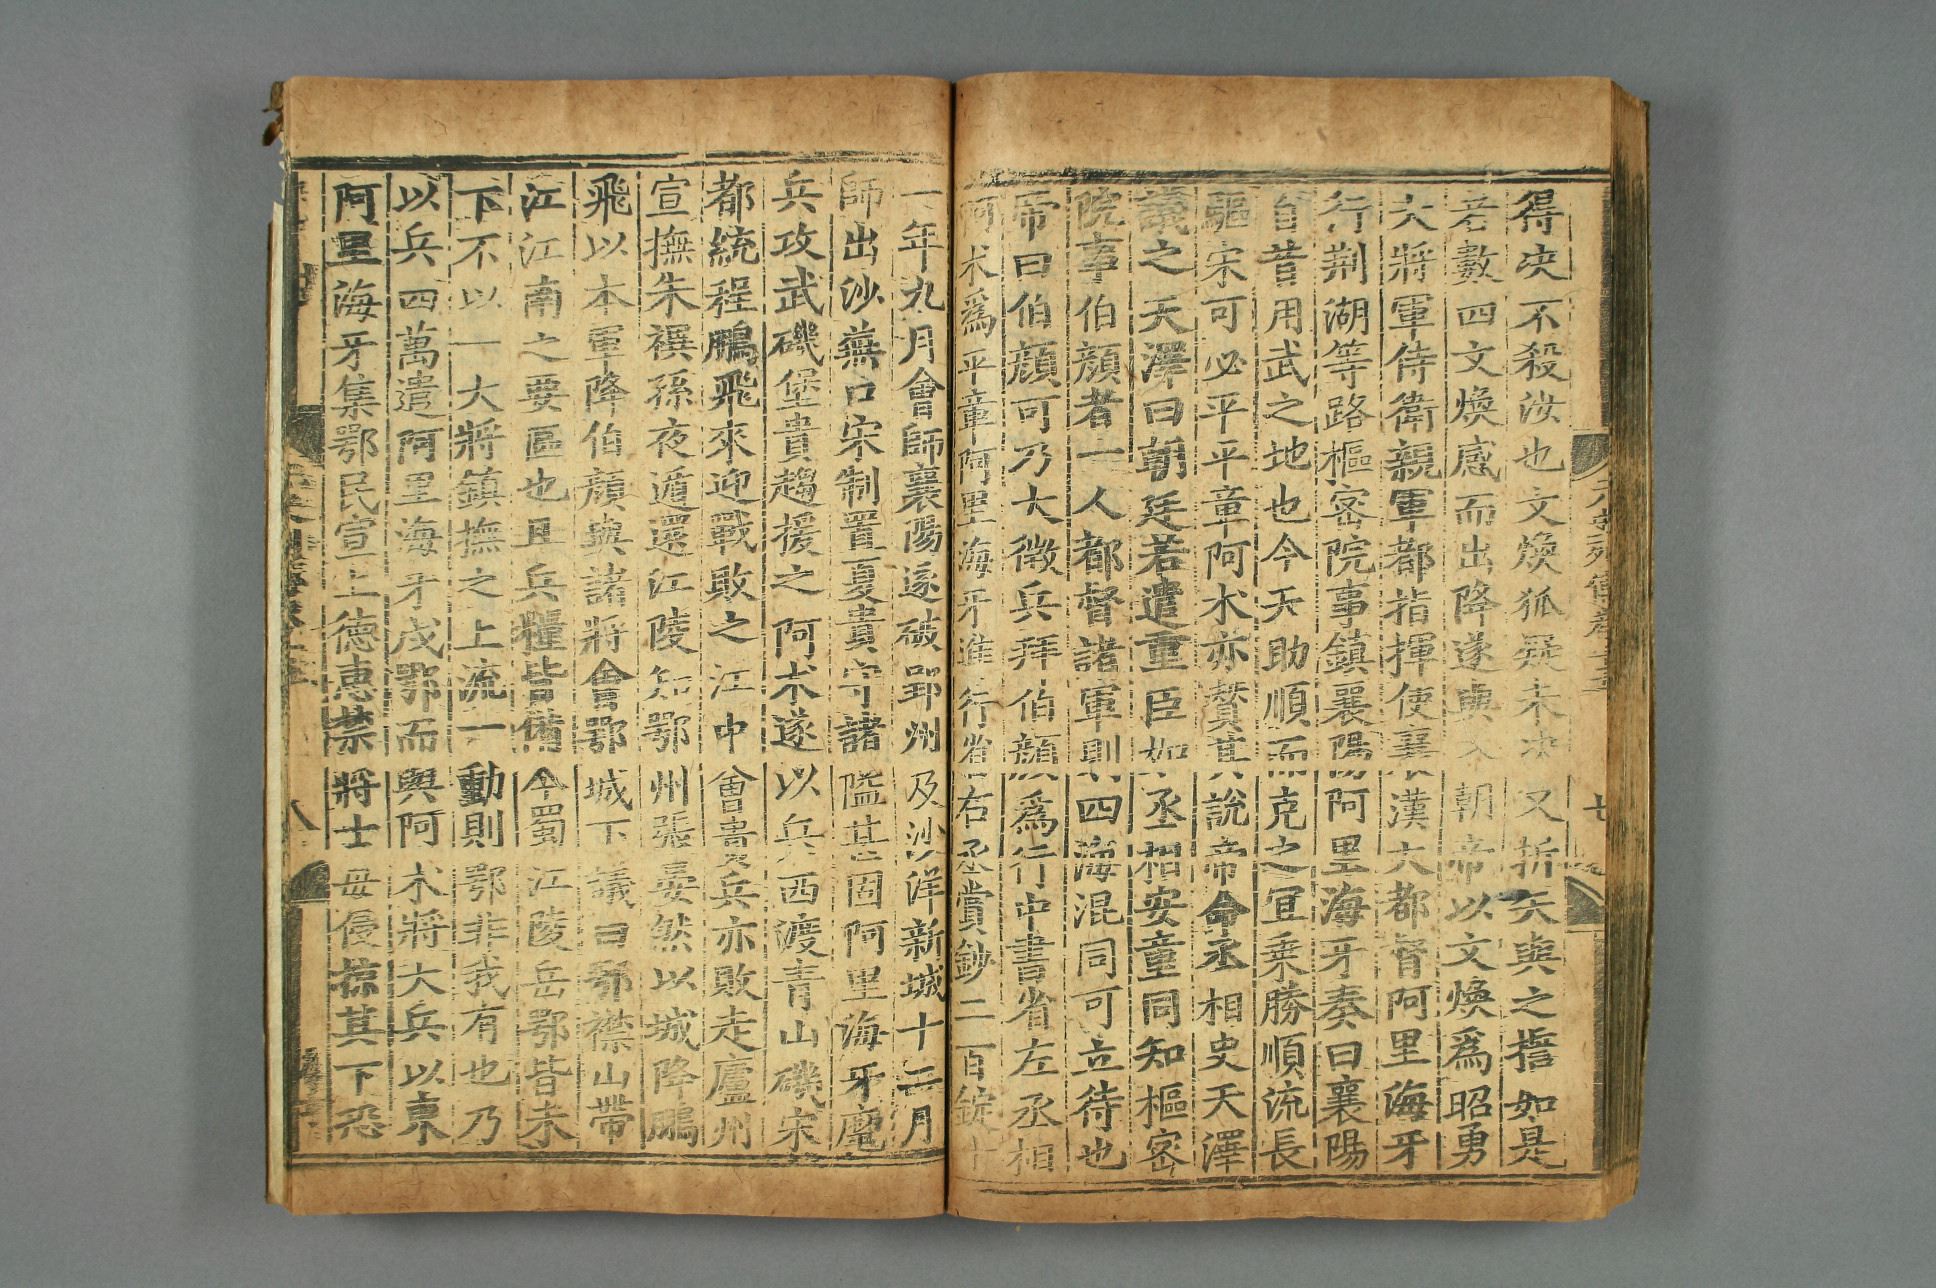 得決不殺汝也文煥狐疑未決又折矢與之誓如是
者數四文煥感而出降遂與入朝帝以文煥爲昭勇
大將軍侍衛親軍都指揮使襄漢大都督阿里海牙
行荆湖等路樞密院事鎮襄陽阿里海牙奏曰襄陽
自昔用武之地也今天助順而克之宜乗勝順流長
驅宋可必平平章阿朮亦贊其說帝命丞相史天澤
議之天澤曰朝廷若遣重臣如丞相安童同知樞密
院事伯顔者一人都督諸軍則四海混同可立待也
帝曰伯顔可乃大徵兵拜伯顔爲行中書省左丞相
阿朮爲平章阿里海牙進行省右丞賞鈔二百錠十
一年九月會師襄陽遂破郢州及沙洋新城十二月
師出沙蕪口宋制置夏貴守諸隘甚固阿里海牙麾
兵攻武磯堡貴趨援之阿朮遂以兵西渡青山磯宋
都統程鵬飛來迎戰敗之江中會貴兵亦敗走廬州
宣撫朱禩孫夜遁還江陵知鄂州張晏然以城降鵬
飛以本軍降伯顔與諸將會鄂城下議曰鄂襟山帶
江江南之要區也且兵糧皆備今蜀江陵岳鄂皆未
下不以一大將鎮撫之上流一動則鄂非我有也乃
以兵四萬遣阿里海牙戍鄂而與阿朮將大兵以東
阿里海牙集鄂民宣上德惠禁將士毋侵掠其下恐